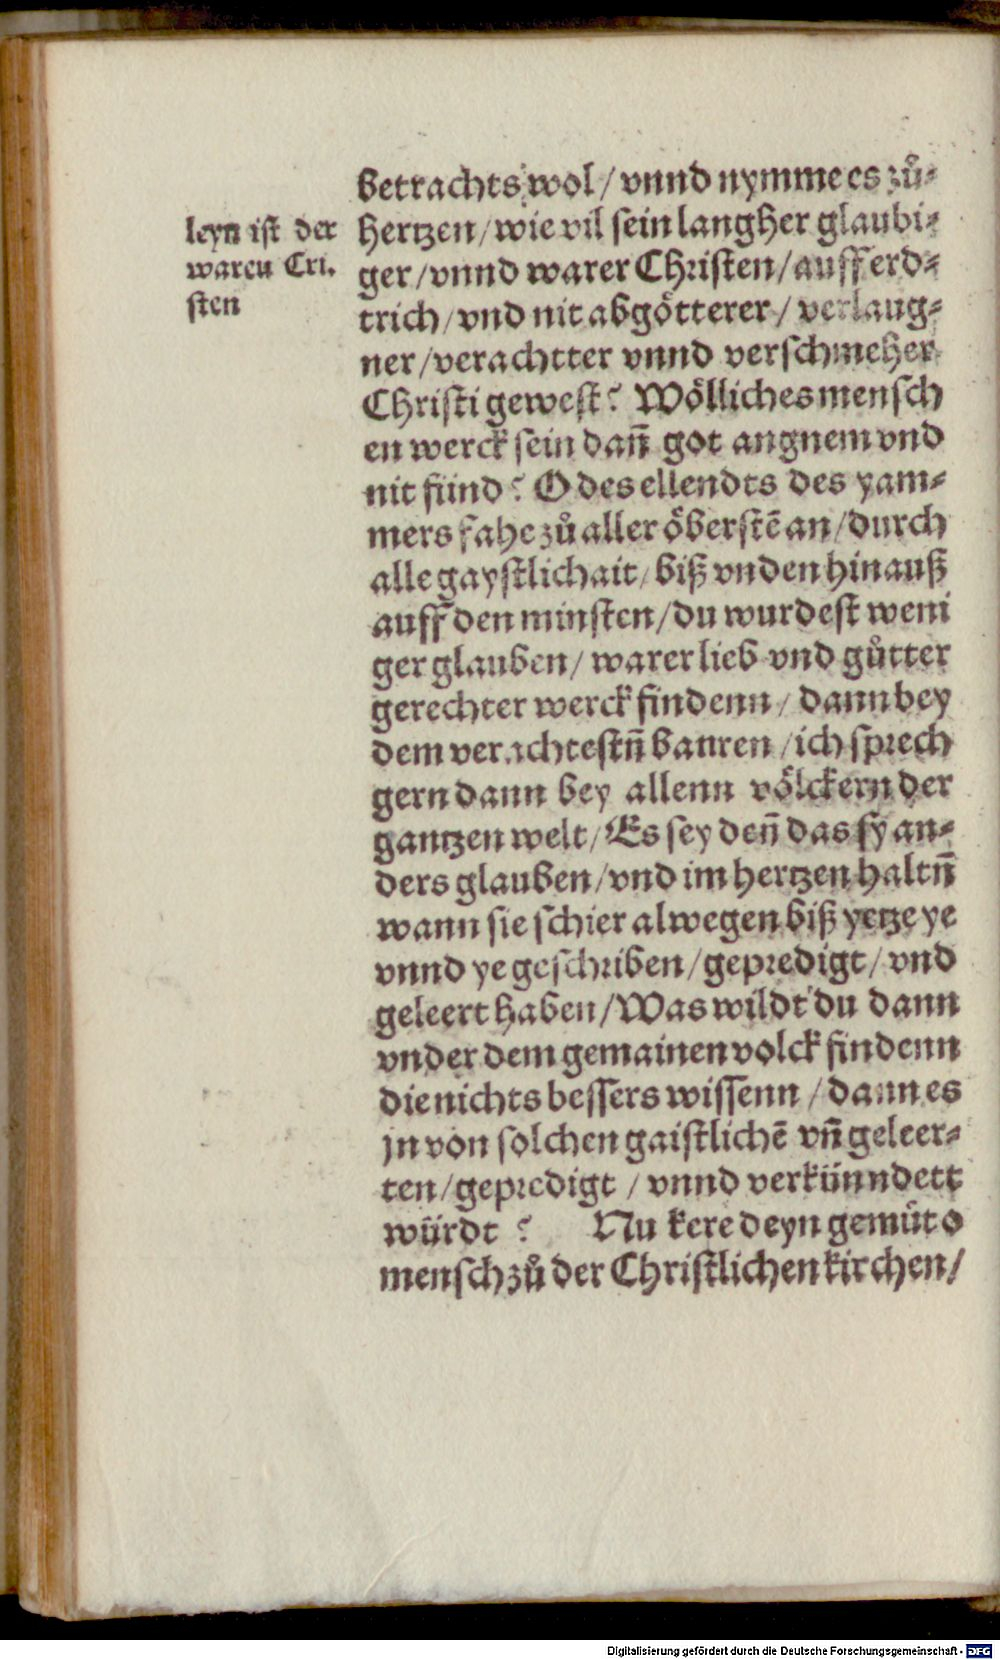 leyn ist der
waren Cri.
sten
betrachts wol / vnnd nymme es zů⸗
hertzen / wie vil sein langher glaubi⸗
ger / vnnd warer Christen / auff erd⸗
trich / vnd nit abgötterer / verlaug⸗
ner / verachtter vnnd verschmeher
Christi gewest? Wölliches mensch
en werck sein dañ got angnem vnd
nit sünd? O des ellendts des yam⸗
mers fahe zů aller öberstē an / durch
alle gaystlichait / biß vnden hinauß
auff den minsten / du wurdest weni
ger glauben / warer lieb vnd gůtter
gerechter werck findenn / dann bey
dem verachtestn̄ bauren / ich sprech
gern dann bey allenn völckern der
gantzen welt / Es sey deñ das sy an⸗
ders glauben / vnd im hertzen haltn̄
wann sie schier alwegen biß yetze ye
vnnd ye geschriben / gepredigt / vnd
geleert haben / Was wildt du dann
vnder dem gemainen volck findenn
die nichts bessers wissenn / dann es
jn von solchen gaistlichē vñ geleer⸗
ten / gepredigt / vnnd verkünndett
würdt? Nu kere deyn gemůt o
mensch zů der Christlichen kirchen /
Digitalisierung gefördert durch die Deutsche Forschungsgemeinschaft - DFG